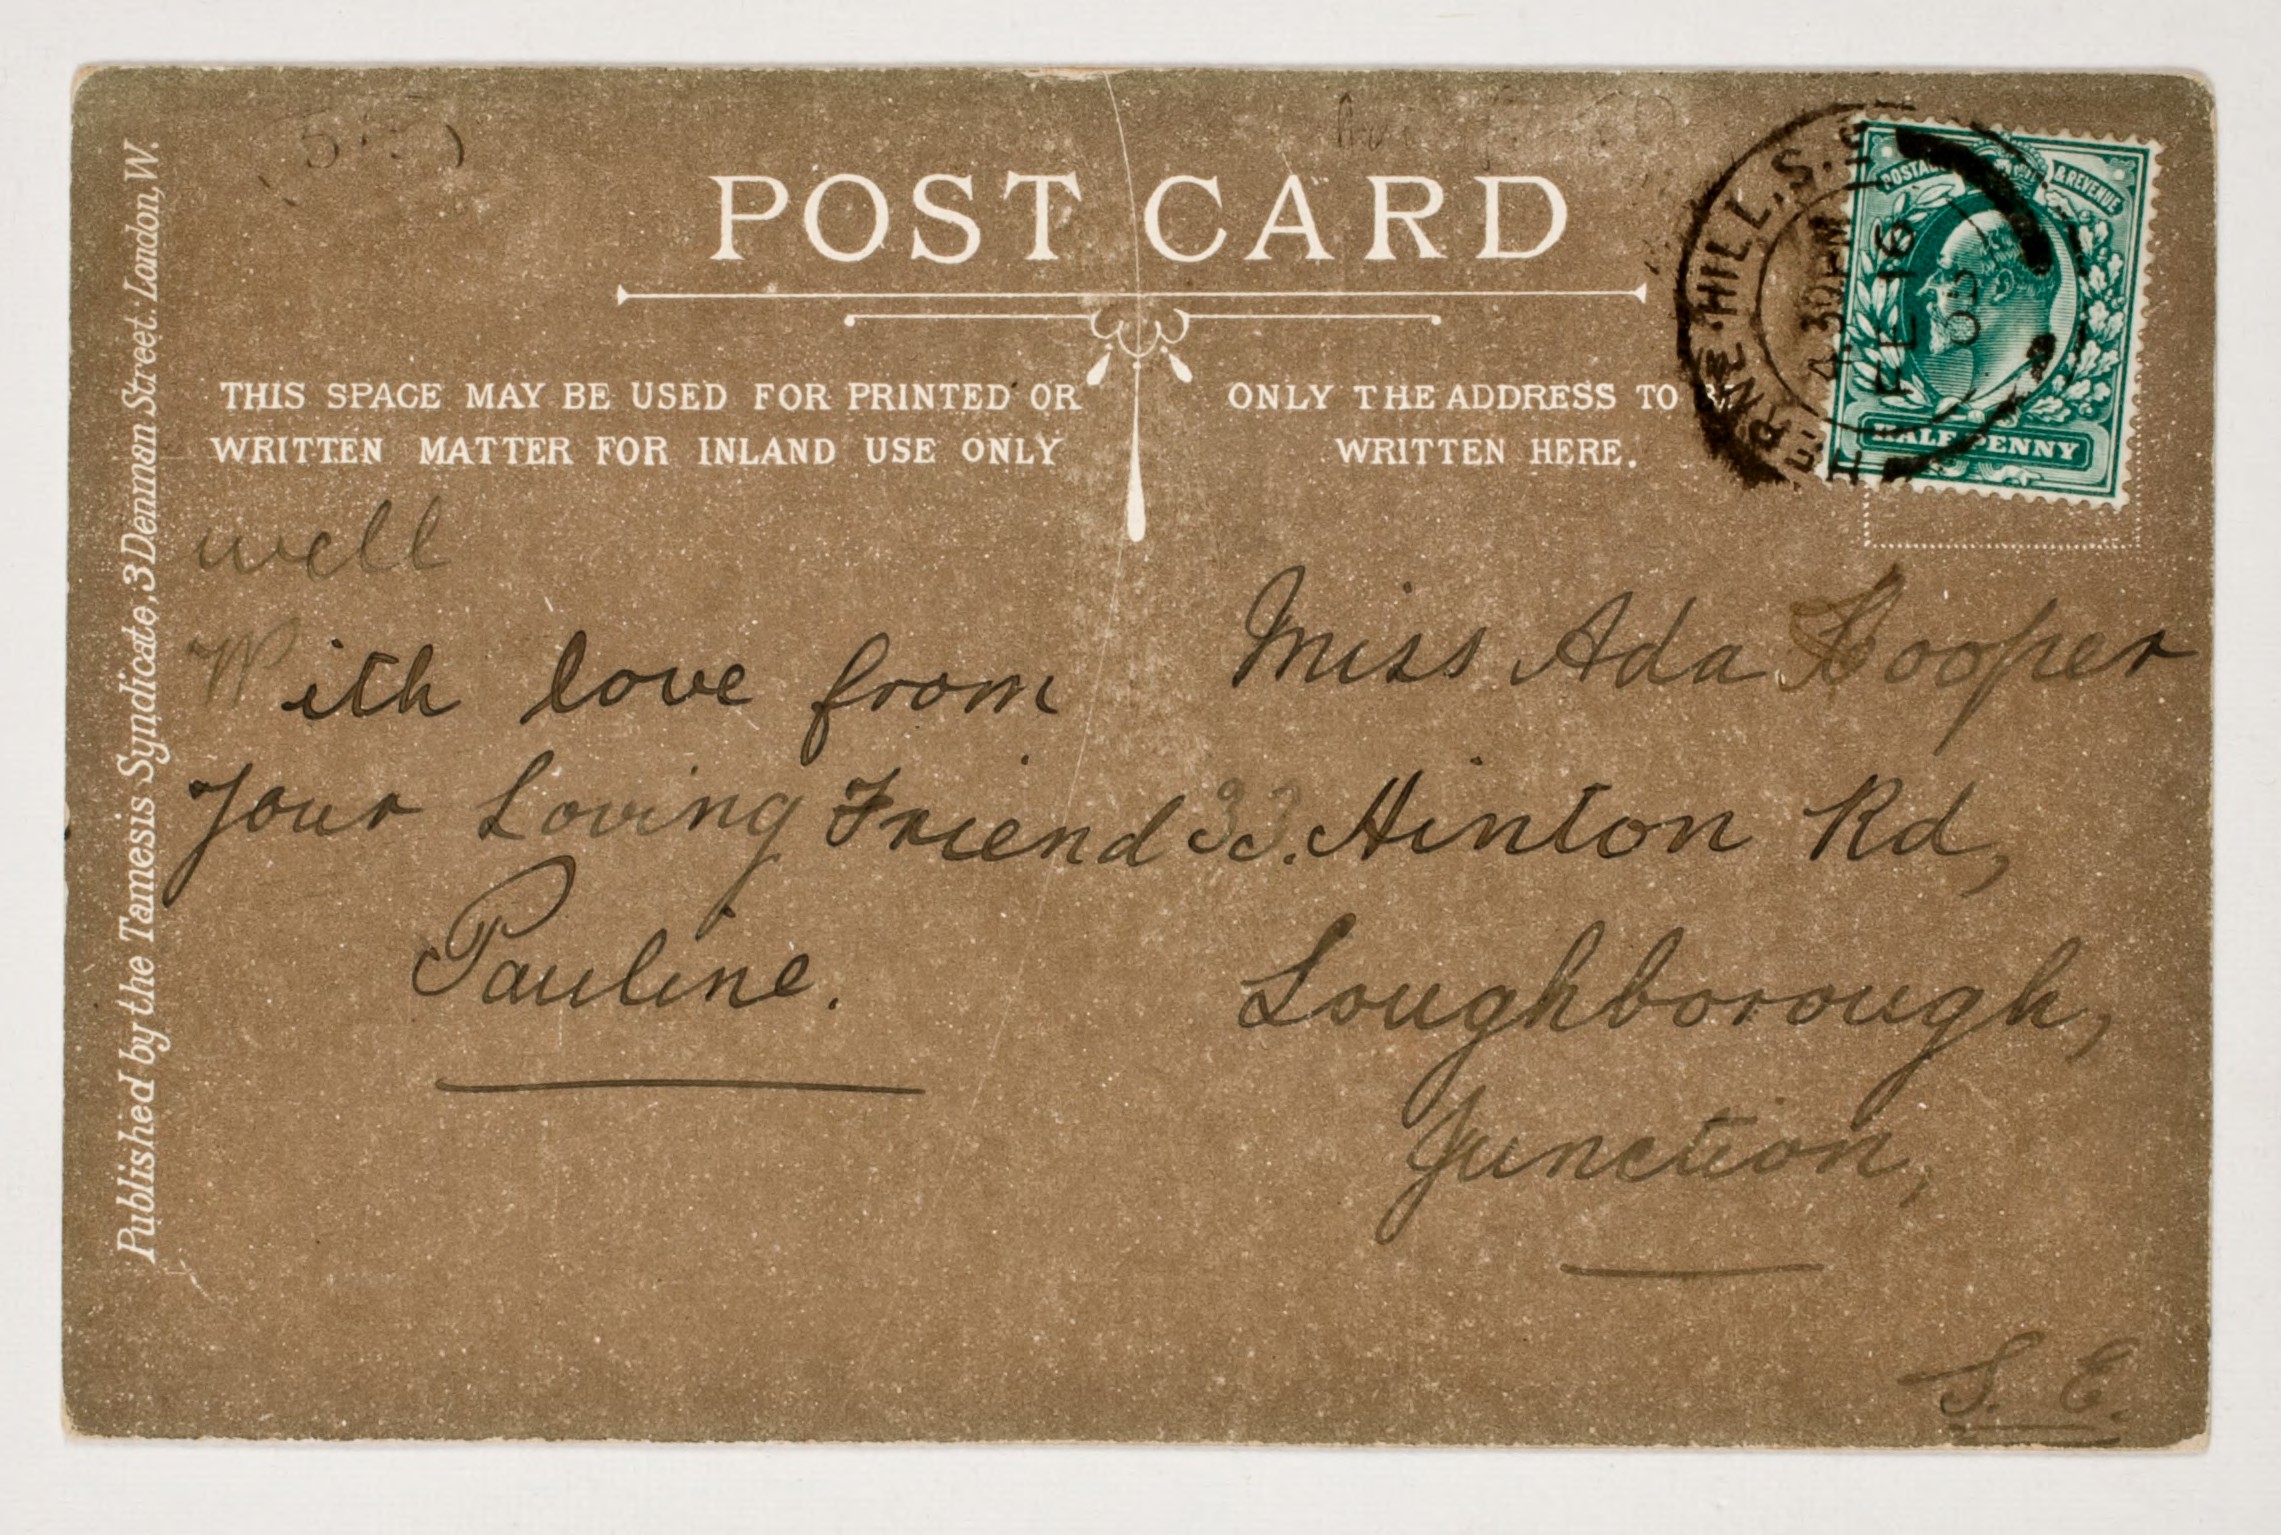 POST CARD
THIS SPACE MAY BE USED FOR PRINTED OR
WRITTEN MATTER FOR INLAND USE ONLY
ONLY THE ADDRESS TO
WRITTEN HERE.
Published by the Tamesis Syndicate, 3 Denman Street. London, W.
HILL. S.
4 30 PM
FE 16
03
POSTAGE & REVENUE
HALFPENNY
well
With love from
your Loving Friend
Pauline.
Miss Ada Cooper
33. Hinton Rd,
Loughborough,
Junction,
S. E.